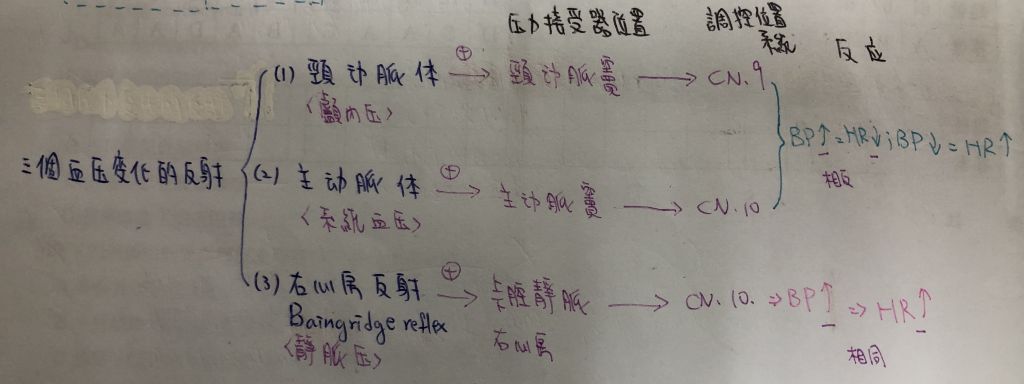 压力接受器位置 調控位置 系統 反应
(1) 頸动脈体 ⊕→ 頸动脈竇 → CN.9
<顱內压>
BP↑=HR↓;BP↓=HR↑
相反
三個血压变化的反射
(2) 主动脈体 ⊕→ 主动脈竇 → CN.10
<系統血压>
(3) 右心房反射 ⊕→ 上下腔靜脈 → CN.10. ⇒BP↑ ⇒ HR↑
Baingridge reflex 右心房 相同
<靜脈压>